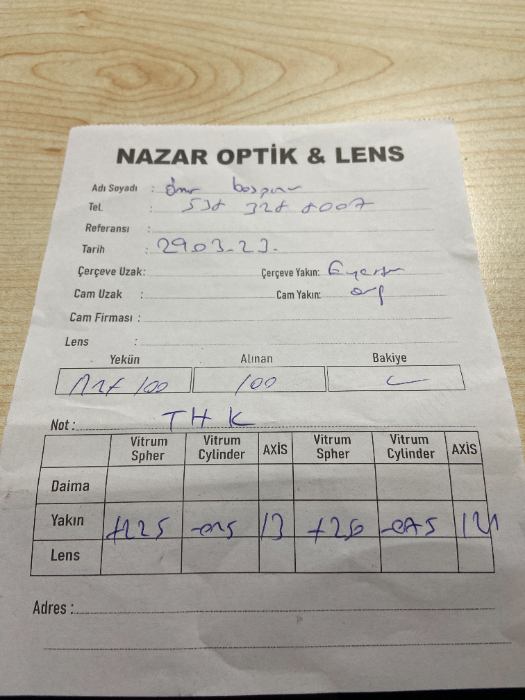 NAZAR OPTİK & LENS
Adı Soyadı :
Tel. :
Referansı :
Tarih : 29.03.23.
Çerçeve Uzak: Çerçeve Yakın:
Cam Uzak : Cam Yakın:
Cam Firması :
Lens :
Yekün Alınan Bakiye
100 100
Not : THK
Vitrum Spher Vitrum Cylinder AXİS Vitrum Spher Vitrum Cylinder AXİS
Daima
Yakın +225 13
Lens
Adres :